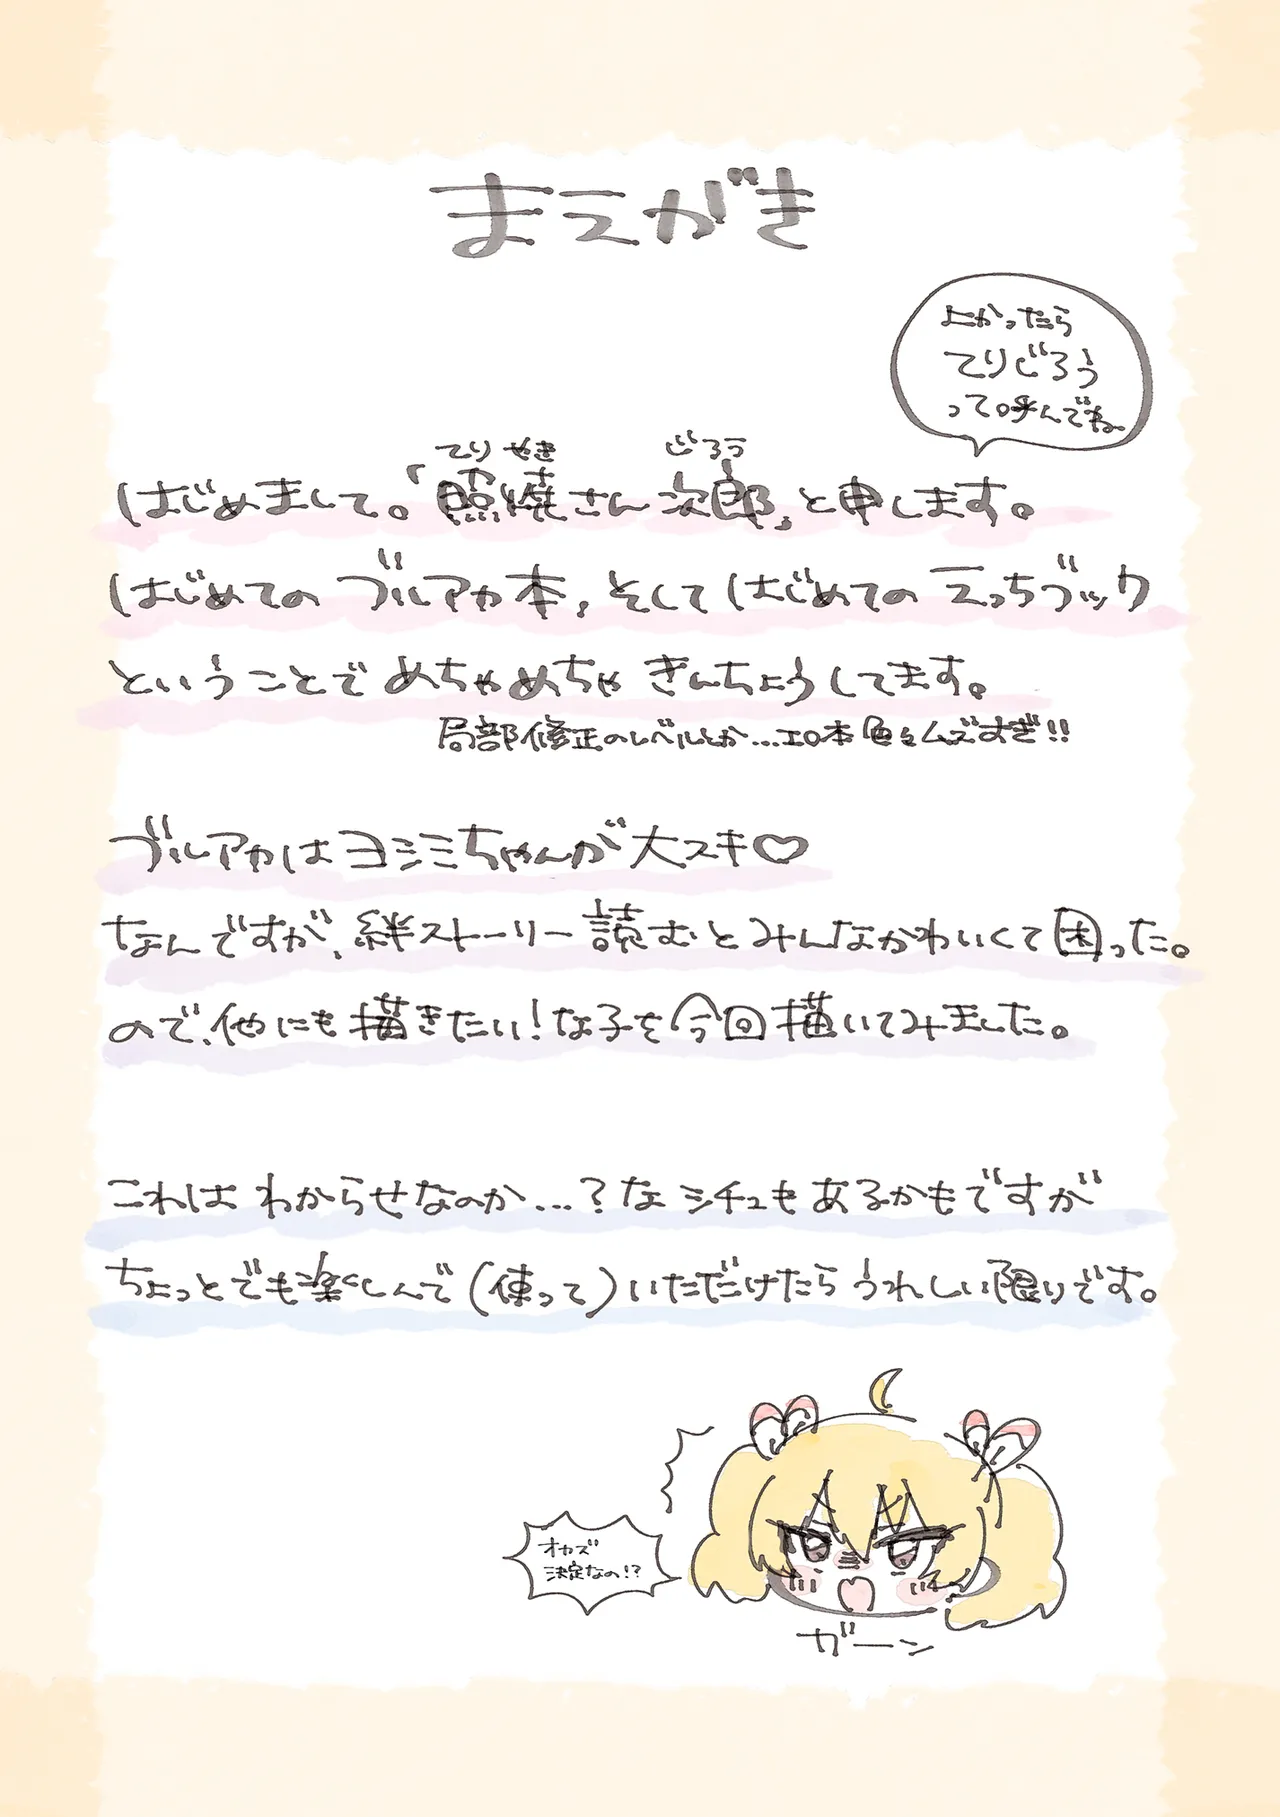 まえがき
よかったら
てりじろう
って呼んでね
てりやき じろう
はじめまして。「照焼さん次郎」と申します。
はじめての ブルアカ本、そして はじめての えっちブック
ということで めちゃめちゃ きんちょうしてます。
局部修正のレベルとか…エロ本色々ムズすぎ!!
ブルアカは ヨシミちゃんが 大スキ♡
なんですが、絆ストーリー読むとみんなかわいくて困った。
ので、他にも描きたい!な子を今回描いてみました。
これは わからせなのか…?な シチュも あるかもですが
ちょっとでも楽しんで(使って)いただけたら うれしい限りです。
オカズ
決定なの!?
ガーン